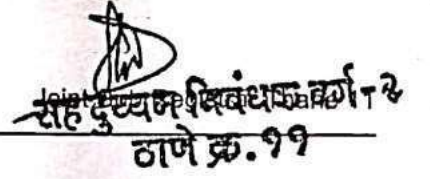 सह दुय्यम निबंधक वर्ग - २
ठाणे क्र. ११